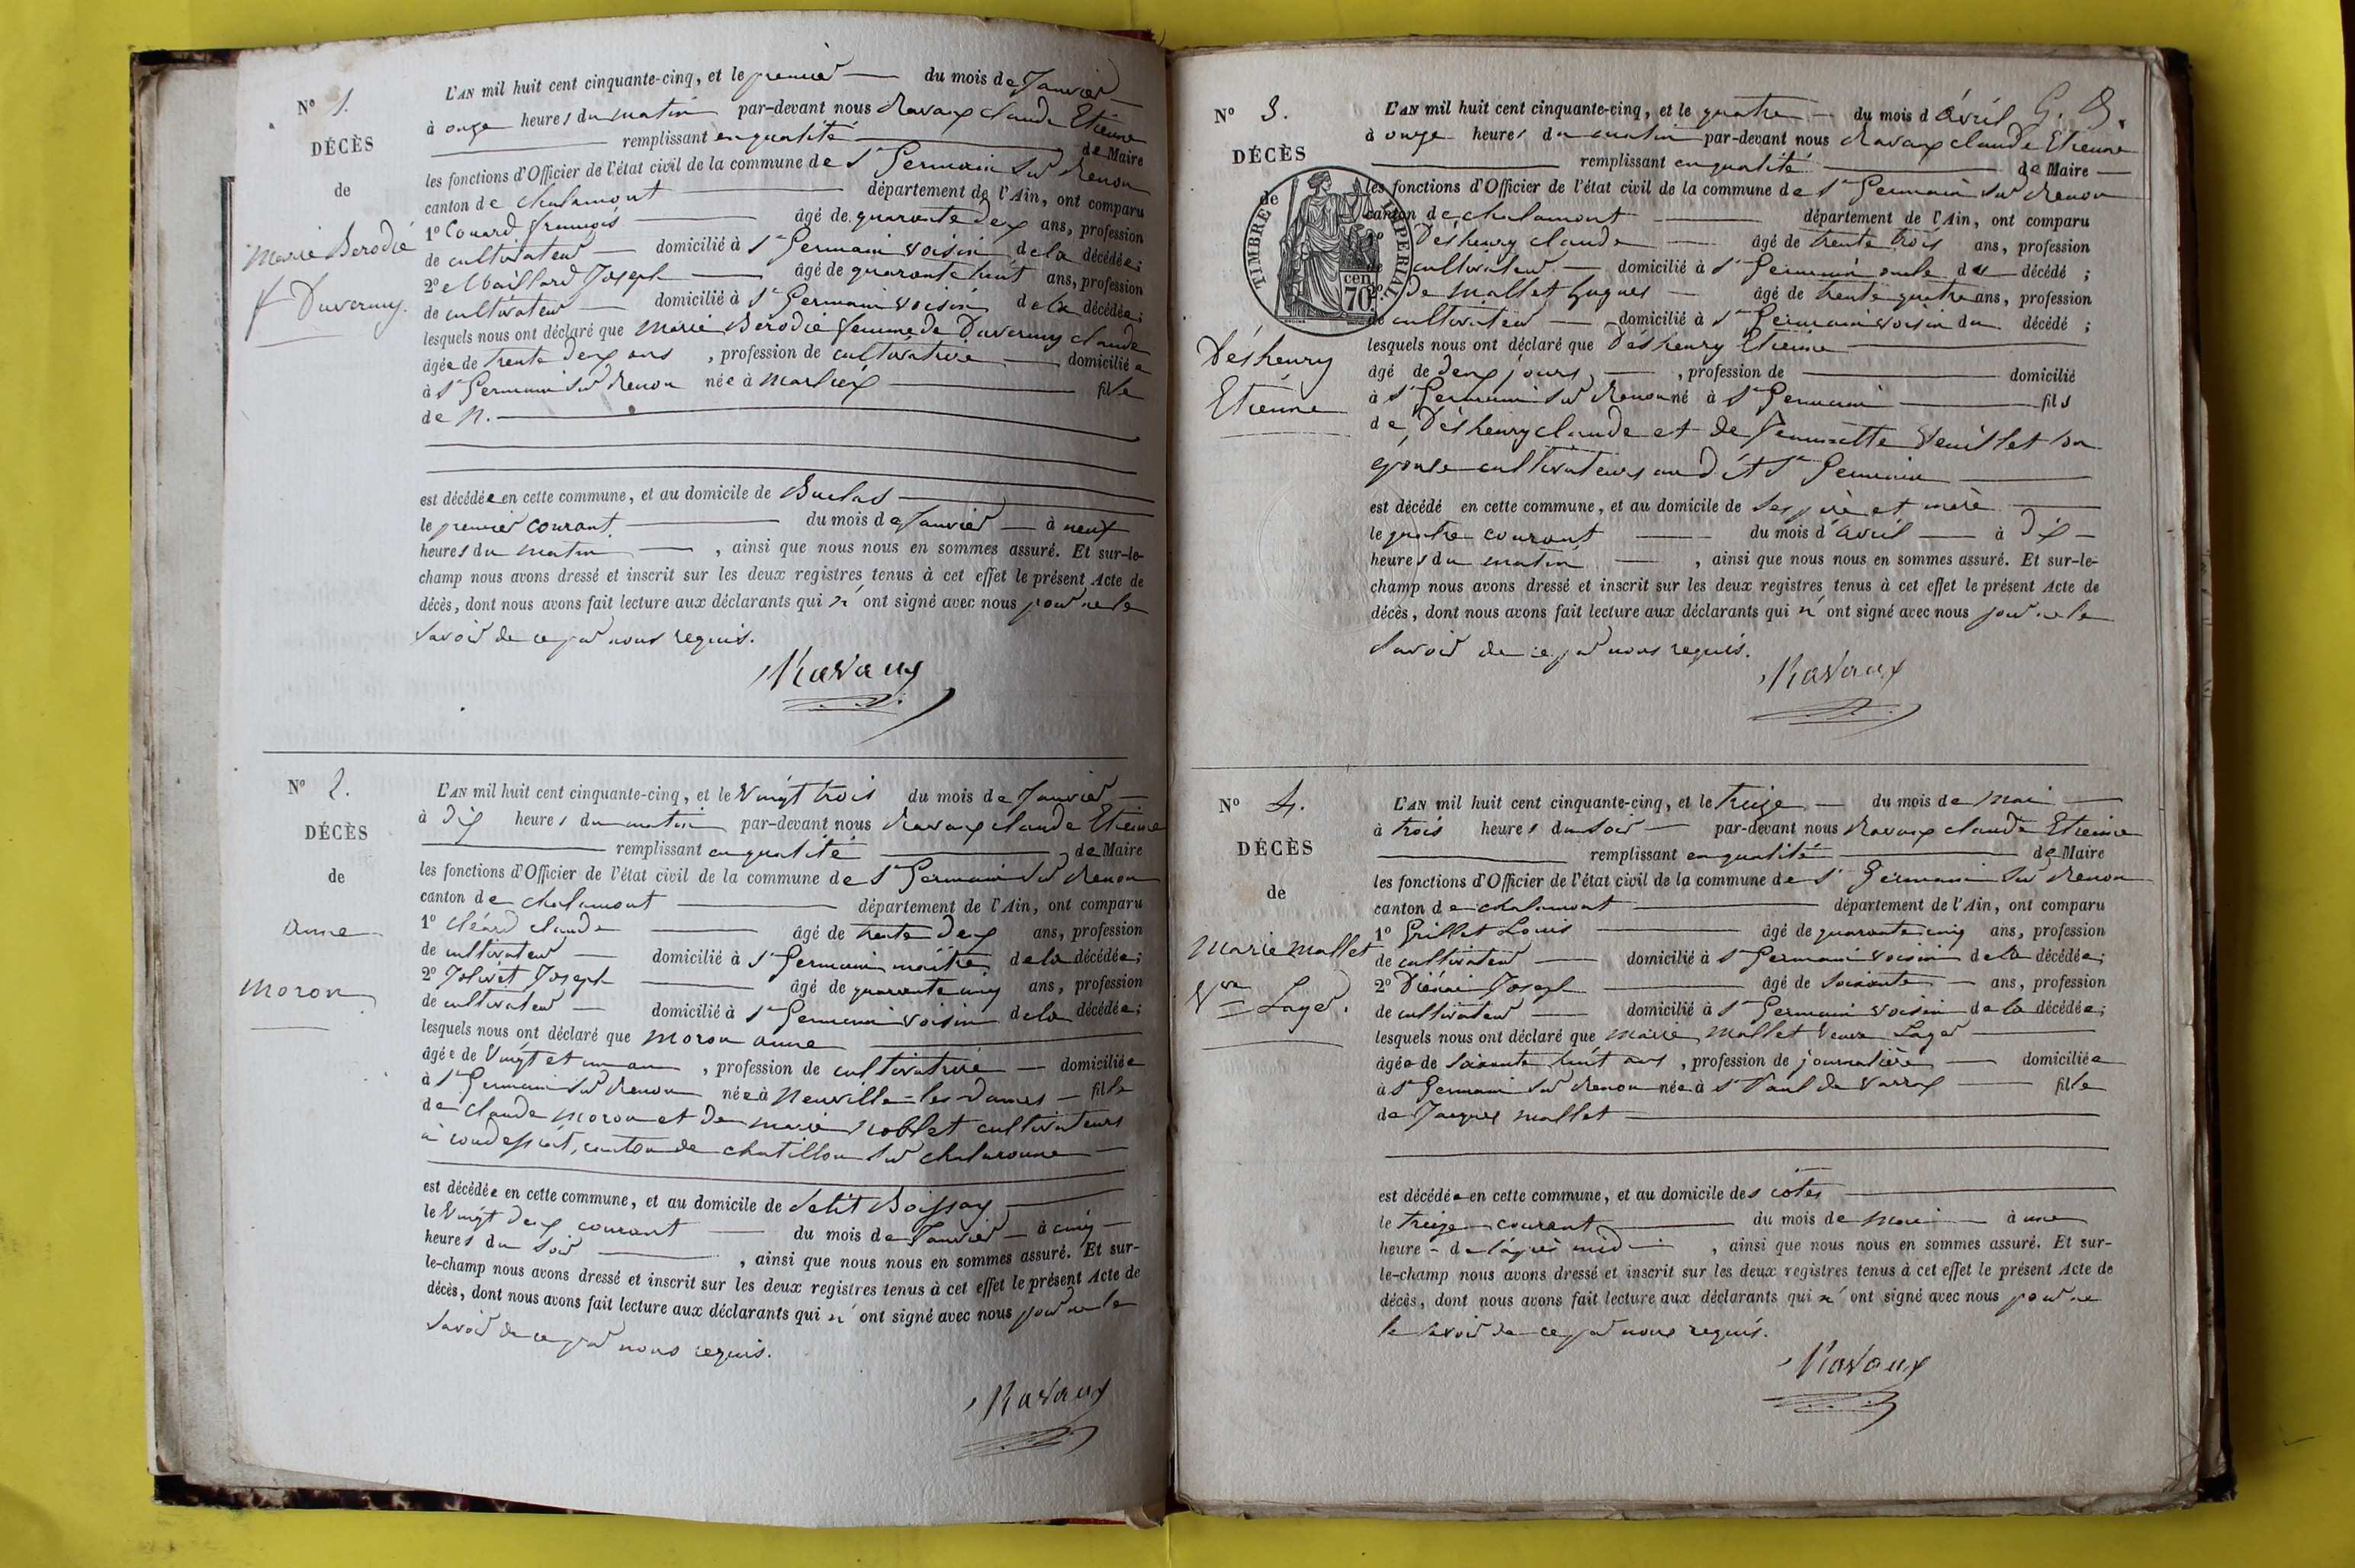 N° 1.
DÉCÈS
de
Marie Berodié
f Duverney.
L'AN mil huit cent cinquante-cinq, et le premier du mois de Janvier
à onze heures du matin par-devant nous Ravaux claude Etienne
remplissant en qualité de Maire
les fonctions d'Officier de l'état civil de la commune de St Germain sur Renon
canton de chalamont département de l'Ain, ont comparu
1° Couard françois âgé de quarante deux ans, profession
de cultivateur domicilié à St Germain voisin de la décédée;
2° Maillard Joseph âgé de quarante huit ans, profession
de cultivateur domicilié à St Germain voisin de la décédée;
lesquels nous ont déclaré que Marie Berodié femme de Duverney claude
âgée de trente deux ans, profession de cultivatrice domiciliée
à St Germain sur Renon née à Marlieux fille
de N.
est décédée en cette commune, et au domicile de
le premier courant. du mois de Janvier à neuf
heures du matin, ainsi que nous nous en sommes assuré. Et sur-le-
champ nous avons dressé et inscrit sur les deux registres tenus à cet effet le présent Acte de
décès, dont nous avons fait lecture aux déclarants qui n'ont signé avec nous pour ne le
savoir de ce par nous requis.
Ravaux
N° 2.
DÉCÈS
de
anne
moron
L'AN mil huit cent cinquante-cinq, et le Vingt trois du mois de Janvier
à dix heures du matin par-devant nous Ravaux claude Etienne
remplissant en qualité de Maire
les fonctions d'Officier de l'état civil de la commune de St Germain sur Renon
canton de chalamont département de l'Ain, ont comparu
1° cléard claude âgé de trente deux ans, profession
de cultivateur domicilié à St Germain maître de la décédée;
2° Jolivet Joseph âgé de quarante cinq ans, profession
de cultivateur domicilié à St Germain voisin de la décédée;
lesquels nous ont déclaré que moron anne
âgée de Vingt et un an, profession de cultivatrice domiciliée
à St Germain sur Renon née à Neuville-les-Dames fille
de claude moron et de marie Noblet cultivateurs
à condessiat, canton de chatillon sur chalaronne
est décédée en cette commune, et au domicile de Petit Boissay
le Vingt deux courant du mois de Janvier à cinq
heures du soir, ainsi que nous nous en sommes assuré. Et sur-
le-champ nous avons dressé et inscrit sur les deux registres tenus à cet effet le présent Acte de
décès, dont nous avons fait lecture aux déclarants qui n'ont signé avec nous pour ne le
savoir de ce par nous requis.
Ravaux
N° 3.
DÉCÈS
de
TIMBRE IMPERIAL
70 cen.
Déshenry
Etienne
G. D.
L'AN mil huit cent cinquante-cinq, et le quatre du mois d'avril
à onze heures du matin par-devant nous Ravaux claude Etienne
remplissant en qualité de Maire
les fonctions d'Officier de l'état civil de la commune de St Germain sur Renon
canton de chalamont département de l'Ain, ont comparu
1° Déshenry claude âgé de trente trois ans, profession
de cultivateur domicilié à St Germain oncle du décédé;
2° De Mallet hugues âgé de trente quatre ans, profession
de cultivateur domicilié à St Germain voisin du décédé;
lesquels nous ont déclaré que Déshenry Etienne
âgé de deux jours, profession de domicilié
à St Germain sur Renon né à St Germain fils
de Déshenry claude et de Jeannette Veuillet son
épouse cultivateurs au dit St Germain
est décédé en cette commune, et au domicile de ses père et mère
le quatre courant du mois d'avril à dix
heures du matin, ainsi que nous nous en sommes assuré. Et sur-le-
champ nous avons dressé et inscrit sur les deux registres tenus à cet effet le présent Acte de
décès, dont nous avons fait lecture aux déclarants qui n'ont signé avec nous pour ne le
savoir de ce par nous requis.
Ravaux
N° 4.
DÉCÈS
de
Marie Mallet
Vve Layer.
L'AN mil huit cent cinquante-cinq, et le treize du mois de Mai
à trois heures du soir par-devant nous Ravaux claude Etienne
remplissant en qualité de Maire
les fonctions d'Officier de l'état civil de la commune de St Germain sur Renon
canton de chalamont département de l'Ain, ont comparu
1° Grillet Louis âgé de quarante cinq ans, profession
de cultivateur domicilié à St Germain voisin de la décédée;
2° Joseph âgé de soixante ans, profession
de cultivateur domicilié à St Germain voisin de la décédée;
lesquels nous ont déclaré que marie Mallet Veuve Layer
âgée de soixante huit ans, profession de journalière domiciliée
à St Germain sur Renon née à St Paul de Varax fille
de Jacques mallet
est décédée en cette commune, et au domicile des côtes
le treize courant du mois de Mai à une
heure de l'après midi, ainsi que nous nous en sommes assuré. Et sur-
le-champ nous avons dressé et inscrit sur les deux registres tenus à cet effet le présent Acte de
décès, dont nous avons fait lecture aux déclarants qui n'ont signé avec nous pour ne
le savoir de ce par nous requis.
Ravaux